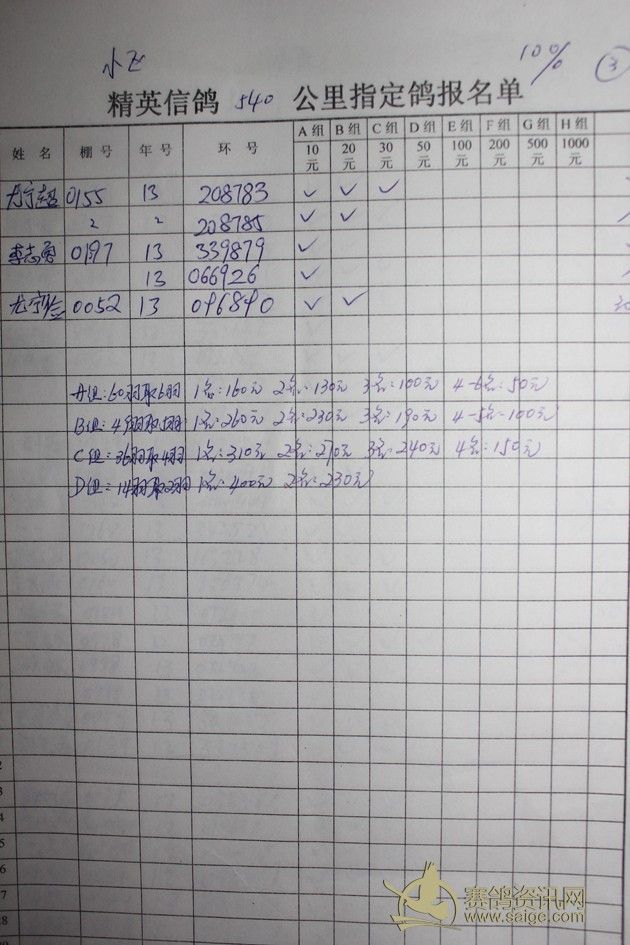 小飞 10% ③
精英信鸽 540 公里指定鸽报名单
姓 名 棚 号 年 号 环 号 A 组 B 组 C 组 D 组 E 组 F 组 G 组 H 组
10元 20元 30元 50元 100元 200元 500元 1000元
0155 13 208783 ✓ ✓ ✓
〃 〃 208785 ✓ ✓
李志勇 0197 13 339879 ✓
13 066926 ✓
0052 13 096890 ✓ ✓
A组:60羽取6羽 1名:160元 2名:130元 3名:100元 4-6名:50元
B组:49羽取5羽 1名:260元 2名:230元 3名:190元 4-5名:100元
C组:36羽取4羽 1名:310元 2名:270元 3名:240元 4名:150元
D组:14羽取2羽 1名:400元 2名:230元
赛鸽资讯网
www.saige.com